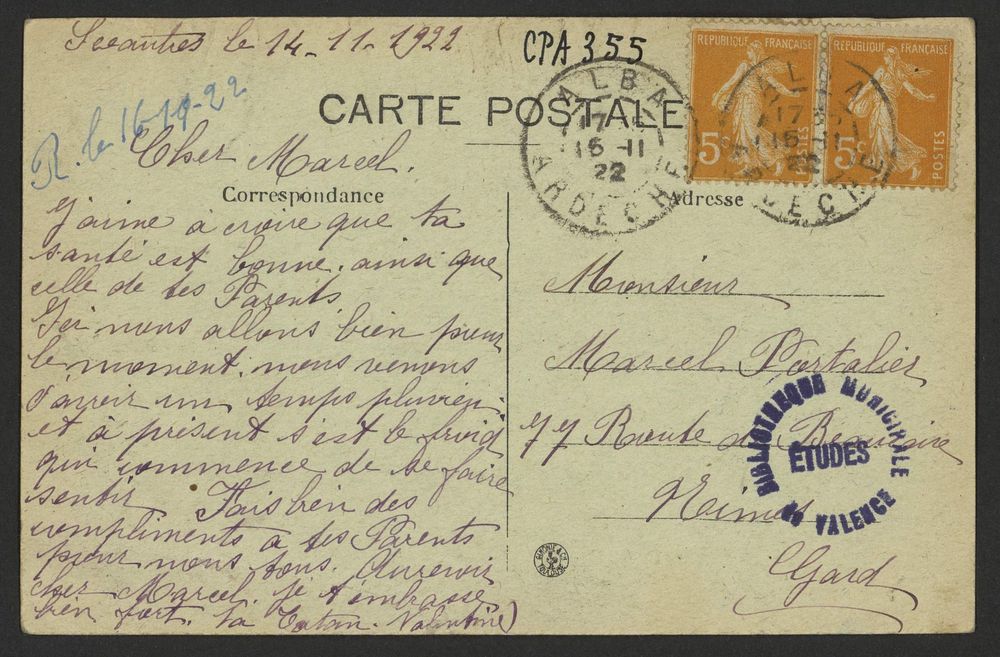 le 14-11-1922
CPA 355
R. le 16-11-22
CARTE POSTALE
Cher Marcel.
Correspondance
Adresse
J'aime à croire que ta
santé est bonne. ainsi que
celle de tes Parents
Ici nous allons bien pour
le moment. nous venons
d'avoir un temps pluvieu.
et à present s'est le froid
qui commence de se faire
sentir Fais bien des
compliments à tes Parents
pour nous tous. Aurevoir
cher Marcel. je t'embrasse
bien fort. ta Tatan. Valentine)
REPUBLIQUE FRANÇAISE
5c POSTES
REPUBLIQUE FRANÇAISE
5c POSTES
ALBA
17
16-11
22
ARDECHE
ALBA
17
16-11
22
ARDECHE
Monsieur
Marcel Portalier
77 Route de Beaucaire
Nimes
Gard
BIBLIOTHEQUE MUNICIPALE
ÉTUDES
DE VALENCE